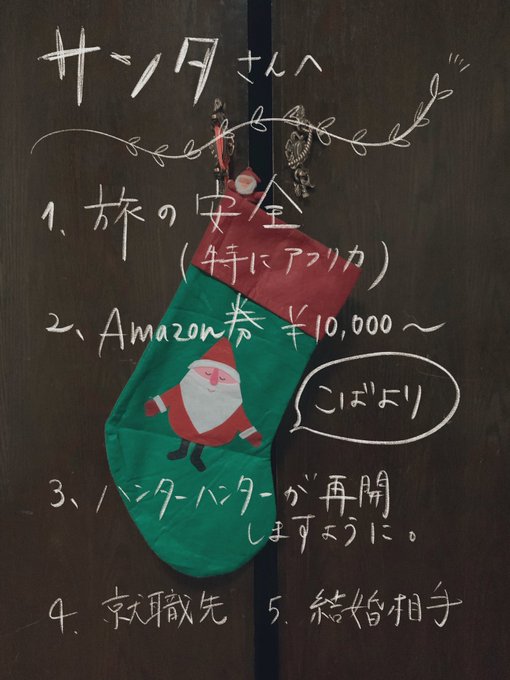 サンタさんへ
1、旅の安全
(特にアフリカ)
2、Amazon券 ¥10,000〜
こばより
3、ハンターハンターが再開
しますように。
4. 就職先 5. 結婚相手